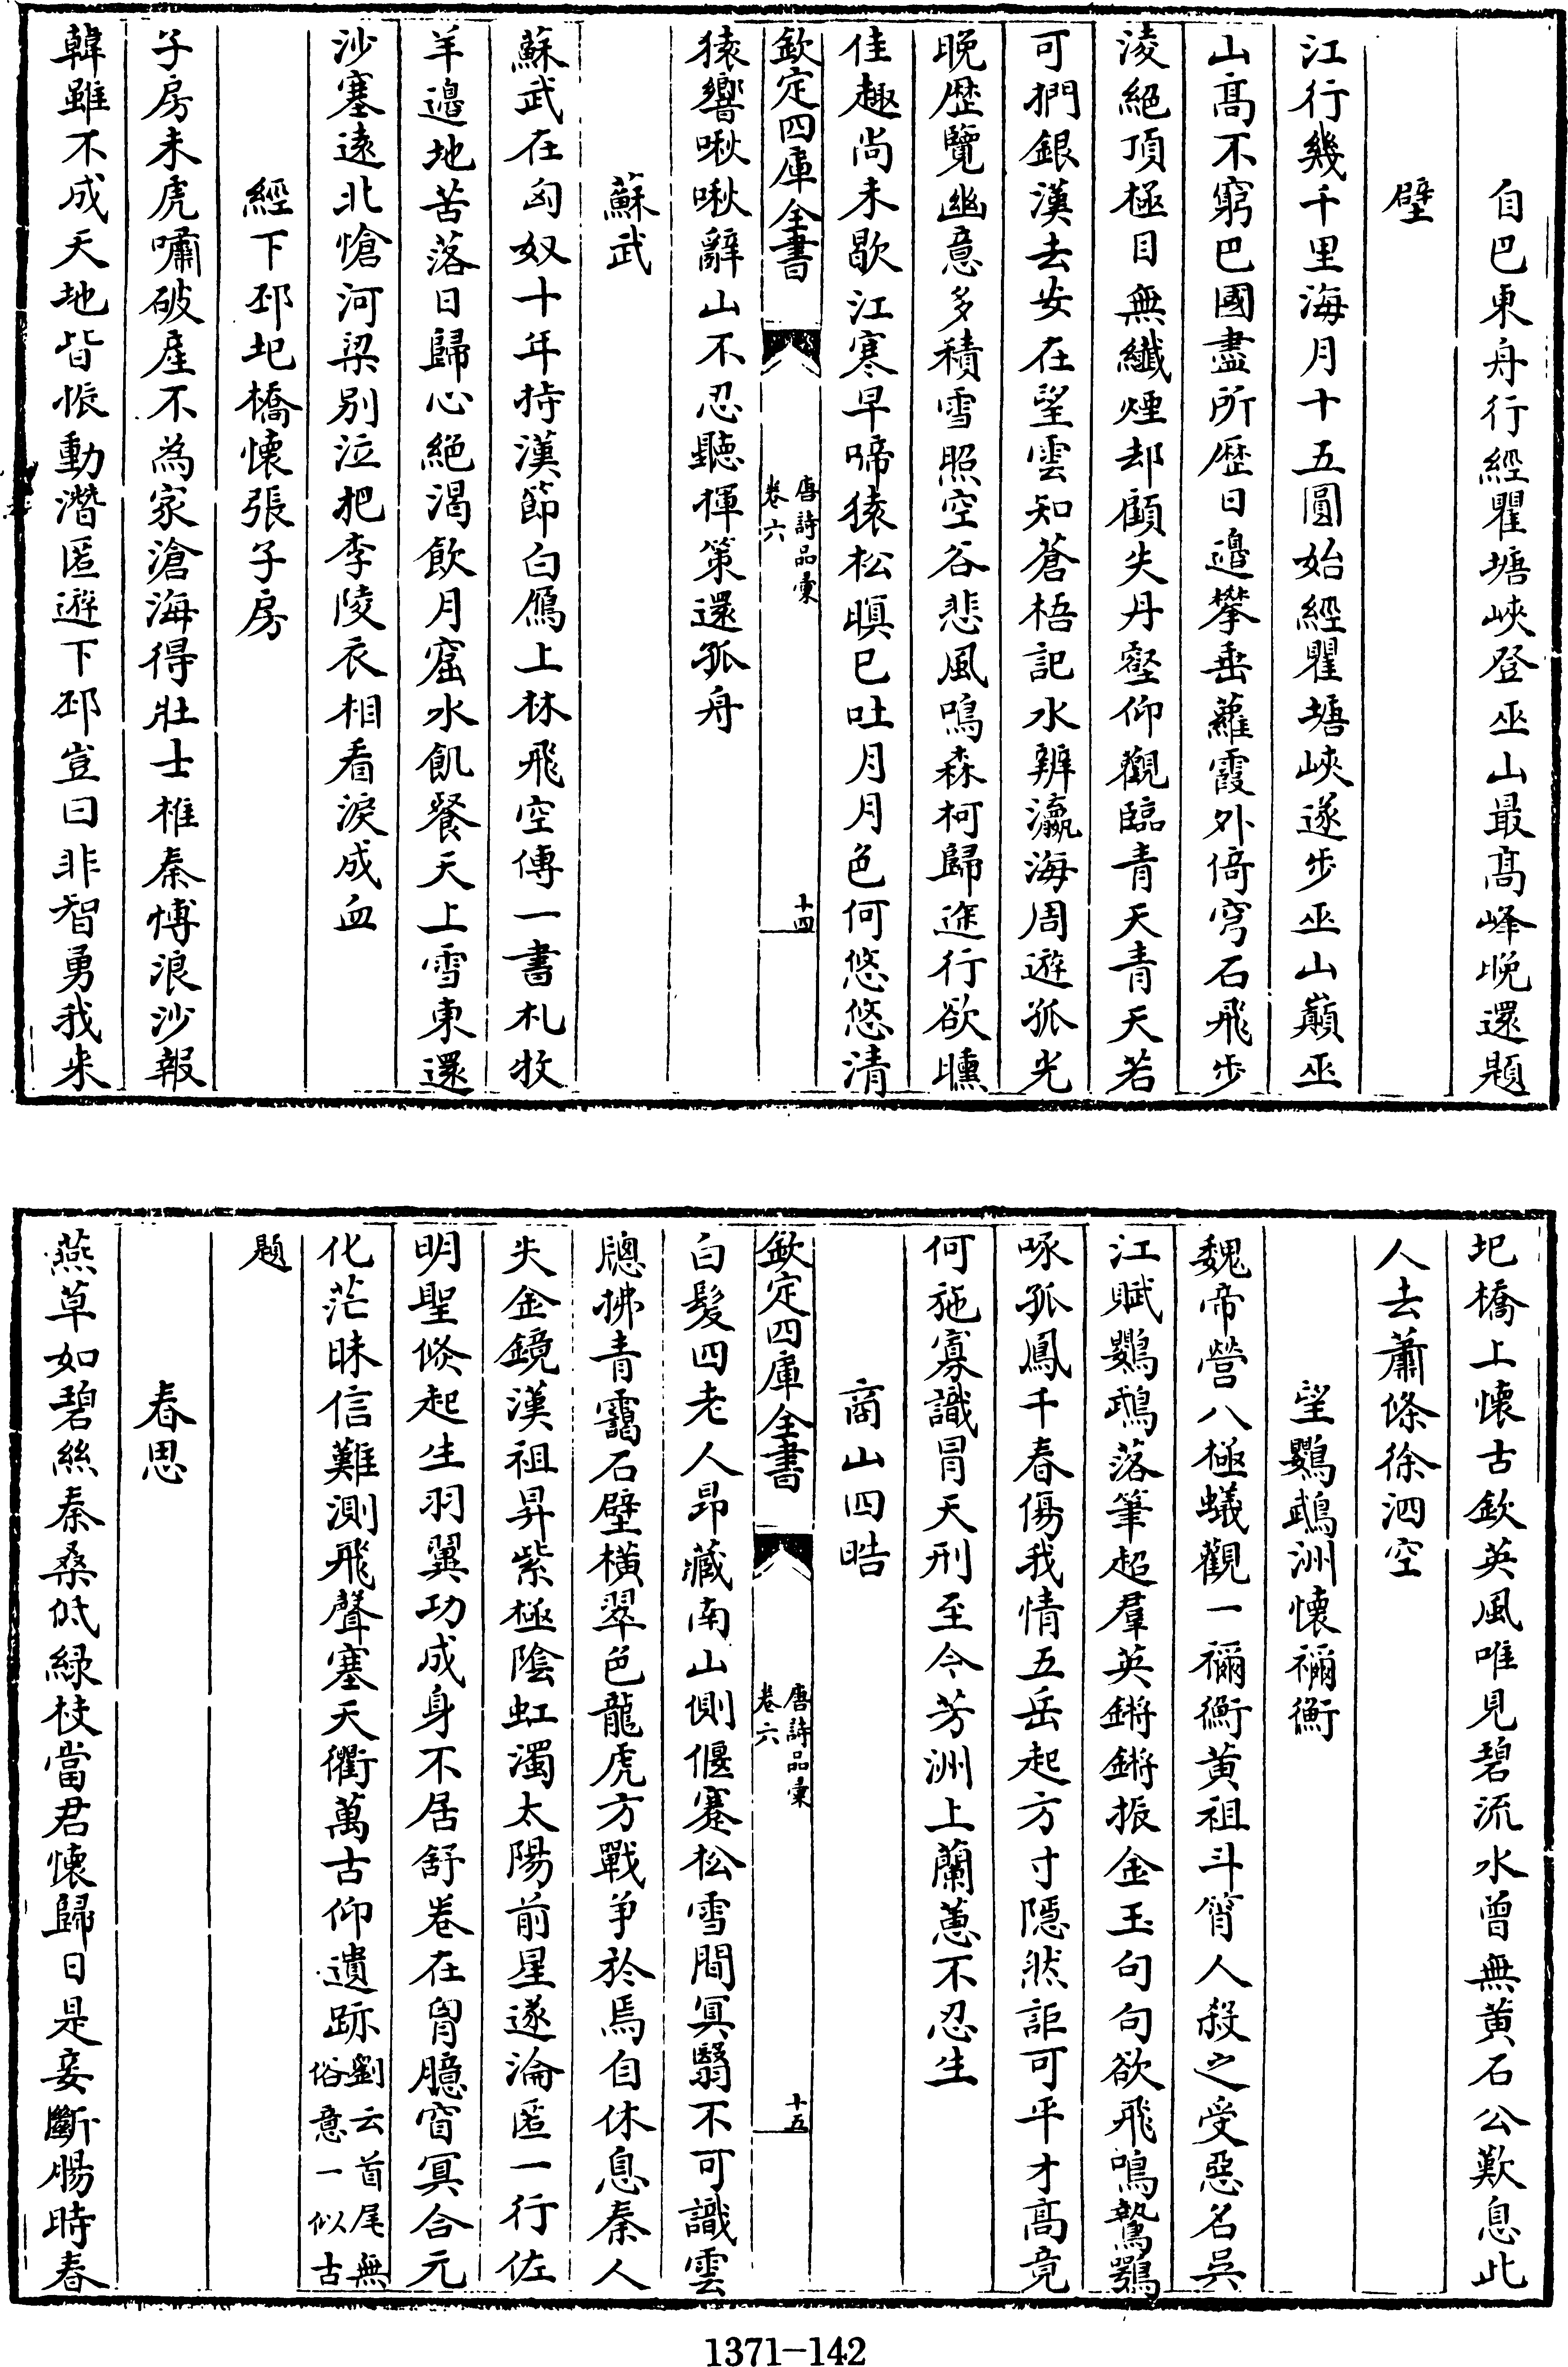 自巴東舟行經瞿塘峽登巫山最高峰晚還題
壁
江行幾千里海月十五圓始經瞿塘峽遂步巫山巔巫
山高不窮巴國盡所歴日邉攀垂蘿霞外倚穹石飛步
淩絶頂極目無纖煙却顧失丹壑仰觀臨青天青天若
可捫銀漢去安在望雲知蒼梧記水辨瀛海周遊孤光
晚歴覽幽意多積雪照空谷悲風鳴森柯歸途行欲曛
佳趣尚未歇江寒早啼猿松暝已吐月月色何悠悠清
欽定四庫全書
唐詩品彚
卷六
十四
猿響啾啾辭山不忍聽揮策還孤舟
蘇武
蘇武在匈奴十年持漢節白鴈上林飛空傳一書札牧
羊邉地苦落日歸心絶渴飲月窟水飢餐天上雪東還
沙塞逺北愴河梁别泣把李陵衣相看淚成血
經下邳圯橋懐張子房
子房未虎嘯破産不為家滄海得壯士椎秦愽浪沙報
韓雖不成天地皆振動潛匿遊下邳豈曰非智勇我来
圯橋上懐古欽英風唯見碧流水曾無黄石公歎息此
人去蕭條徐泗空
望鸚鵡洲懐禰衡
魏帝營八極蟻觀一禰衡黄祖斗筲人殺之受惡名吳
江賦鸚鵡落筆超羣英鏘鏘振金玉句句欲飛鳴鷙鶚
啄孤鳳千春傷我情五岳起方寸隠然詎可平才髙竟
何施寡識冐天刑至今芳洲上蘭蕙不忍生
商山四晧
欽定四庫全書
唐詩品彚
卷六
十五
白髮四老人昻藏南山側偃蹇松雪間冥翳不可識雲
牎拂青靄石壁横翠色龍虎方戰争於焉自休息秦人
失金鏡漢祖昇紫極陰虹濁太陽前星遂淪匿一行佐
明聖倐起生羽翼功成身不居舒巻在胷臆窅冥合元
化茫昧信難測飛聲塞天衢萬古仰遺跡劉云首尾無
俗意一似古
題
春思
燕草如碧絲秦桑低緑枝當君懐歸日是妾斷腸時春
1371-142